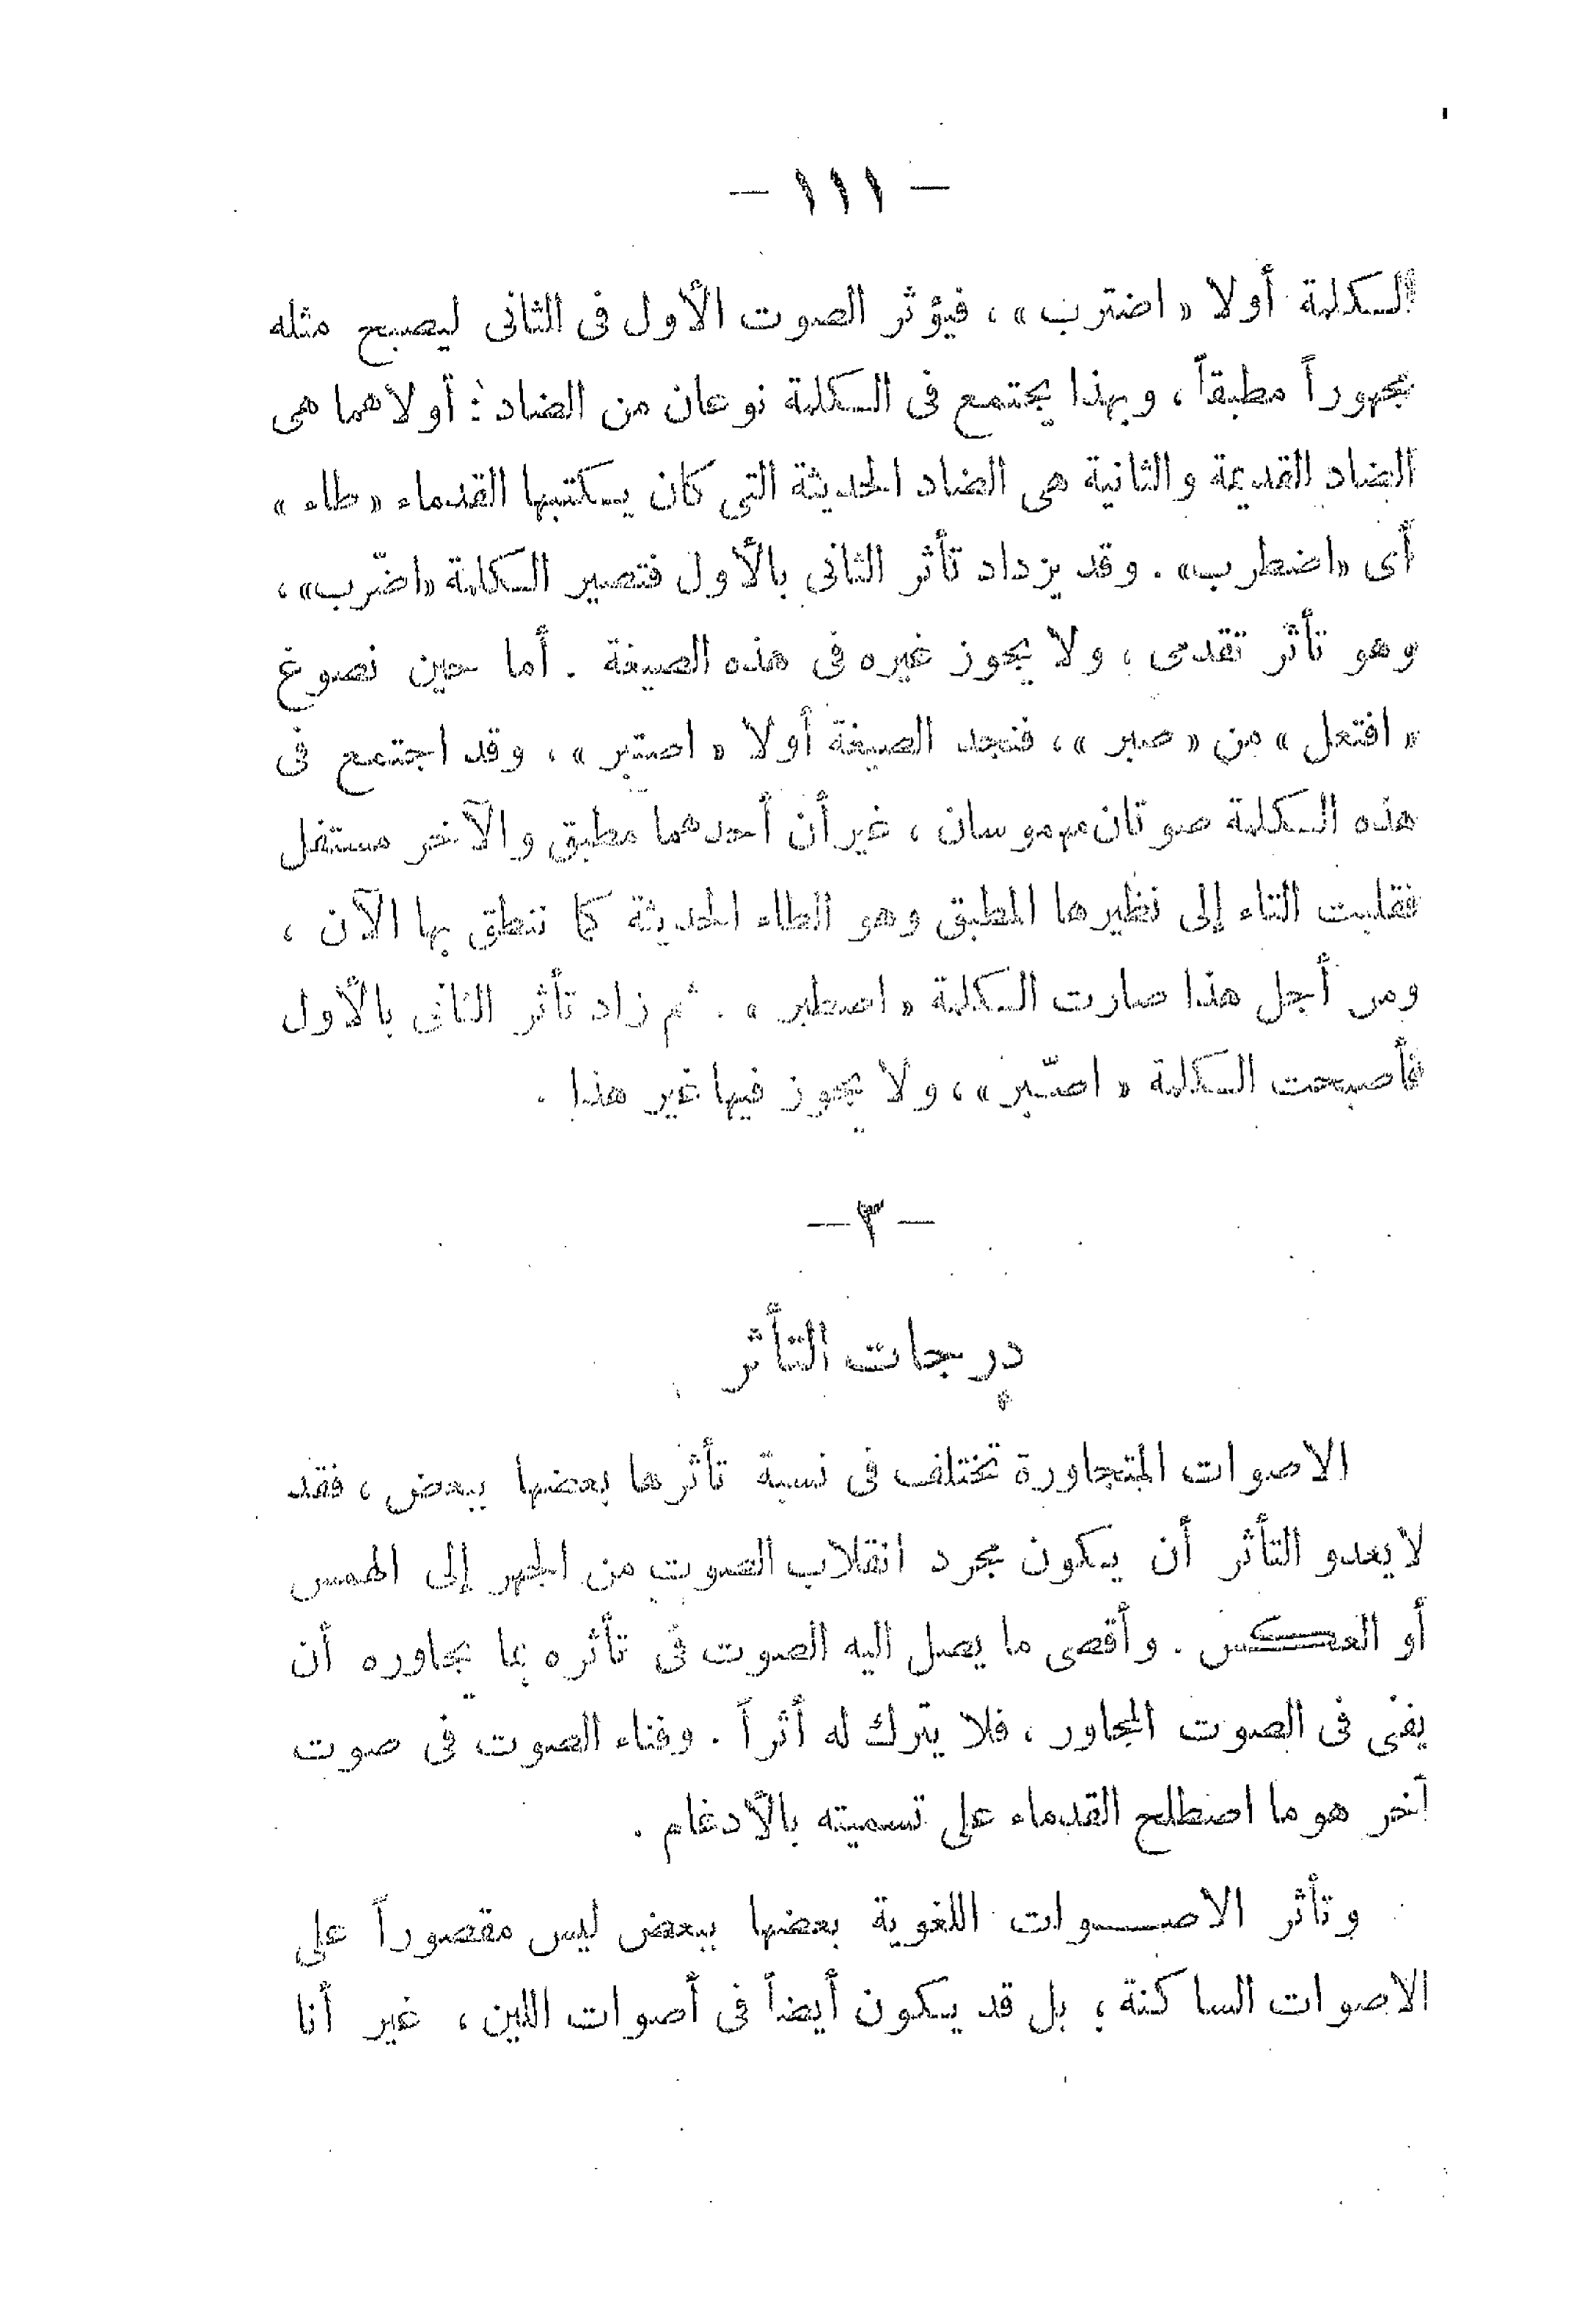 — ١١١ —
الكلمة أولا « اضترب» ، فيؤثر الصوت الأول فى الثانى ليصبح مثله
مجهوراً مطبقاً ، وبهذا يجتمع فى الكلمة نوعان من الضاد : أولاهما هى
الضاد القديمة والثانية هى الضاد الحديثة التى كان يكتبها القدماء « طاء »
أى «اضطرب» . وقد يزداد تأثر الثانى بالأول فتصير الكلمة «اضّرب» ،
وهو تأثر تقدمى ، ولا يجوز غيره فى هذه الصيغة . أما حين نصوغ
« افتعل » من « صبر » ، فنجد الصيغة أولا « اصتبر » ، وقد اجتمع فى
هذه الكلمة صوتان مهموسان ، غير أن أحدهما مطبق والآخر مستفل
فقلبت التاء إلى نظيرها المطبق وهو الطاء الحديثة كما ننطق بها الآن ،
ومن أجل هذا صارت الكلمة « اصطبر » . ثم زاد تأثر الثانى بالأول
فأصبحت الكلمة « اصّبر » ، ولا يجوز فيها غير هذا .
— ٣ —
درجات التأثر
الاصوات المتجاورة تختلف فى نسبة تأثرها بعضها ببعض ، فقد
لا يعدو التأثر أن يكون مجرد انقلاب الصوت من الجهر إلى الهمس
أو العكس . وأقصى ما يصل اليه الصوت فى تأثره بما يجاوره أن
يفنى فى الصوت المجاور ، فلا يترك له أثراً . وفناء الصوت فى صوت
آخر هو ما اصطلح القدماء على تسميته بالأدغام .
وتأثر الاصوات اللغوية بعضها ببعض ليس مقصوراً على
الاصوات الساكنة ؛ بل قد يكون أيضاً فى أصوات اللين ، غير أنا